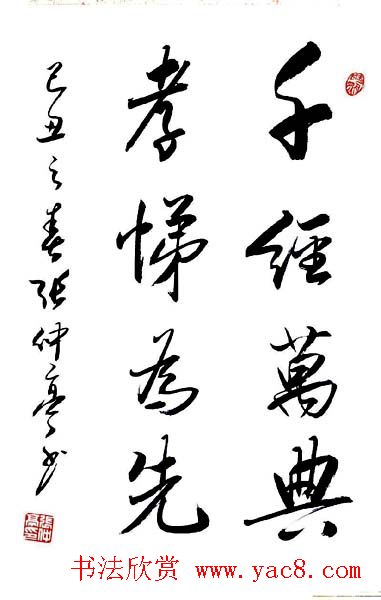 千經萬典
孝悌為先
己丑之春張仲亭书
張仲亭印
书法欣赏 www.yac8.com